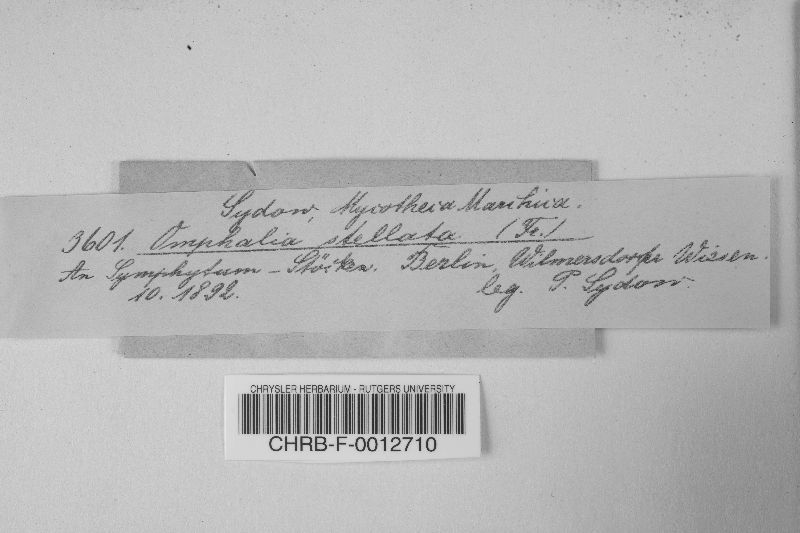 Sydow, Mycotheca Marchica.
3601. Omphalia stellata (Fr.)
An Symphytum-Stöcken. Berlin, Wilmersdorfer Wiesen.
10. 1892. leg. P. Sydow.
CHRYSLER HERBARIUM - RUTGERS UNIVERSITY
CHRB-F-0012710